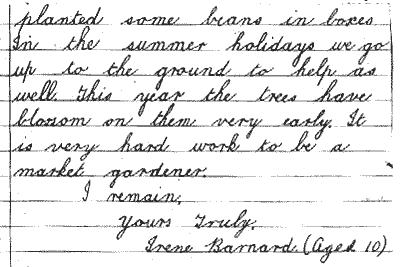 planted some beans in boxes
In the summer holidays we go
up to the ground to help as
well. This year the trees have
blossom on them very early. It
is very hard work to be a
market gardener.
I remain,
Yours Truly,
Irene Barnard. (Aged 10)